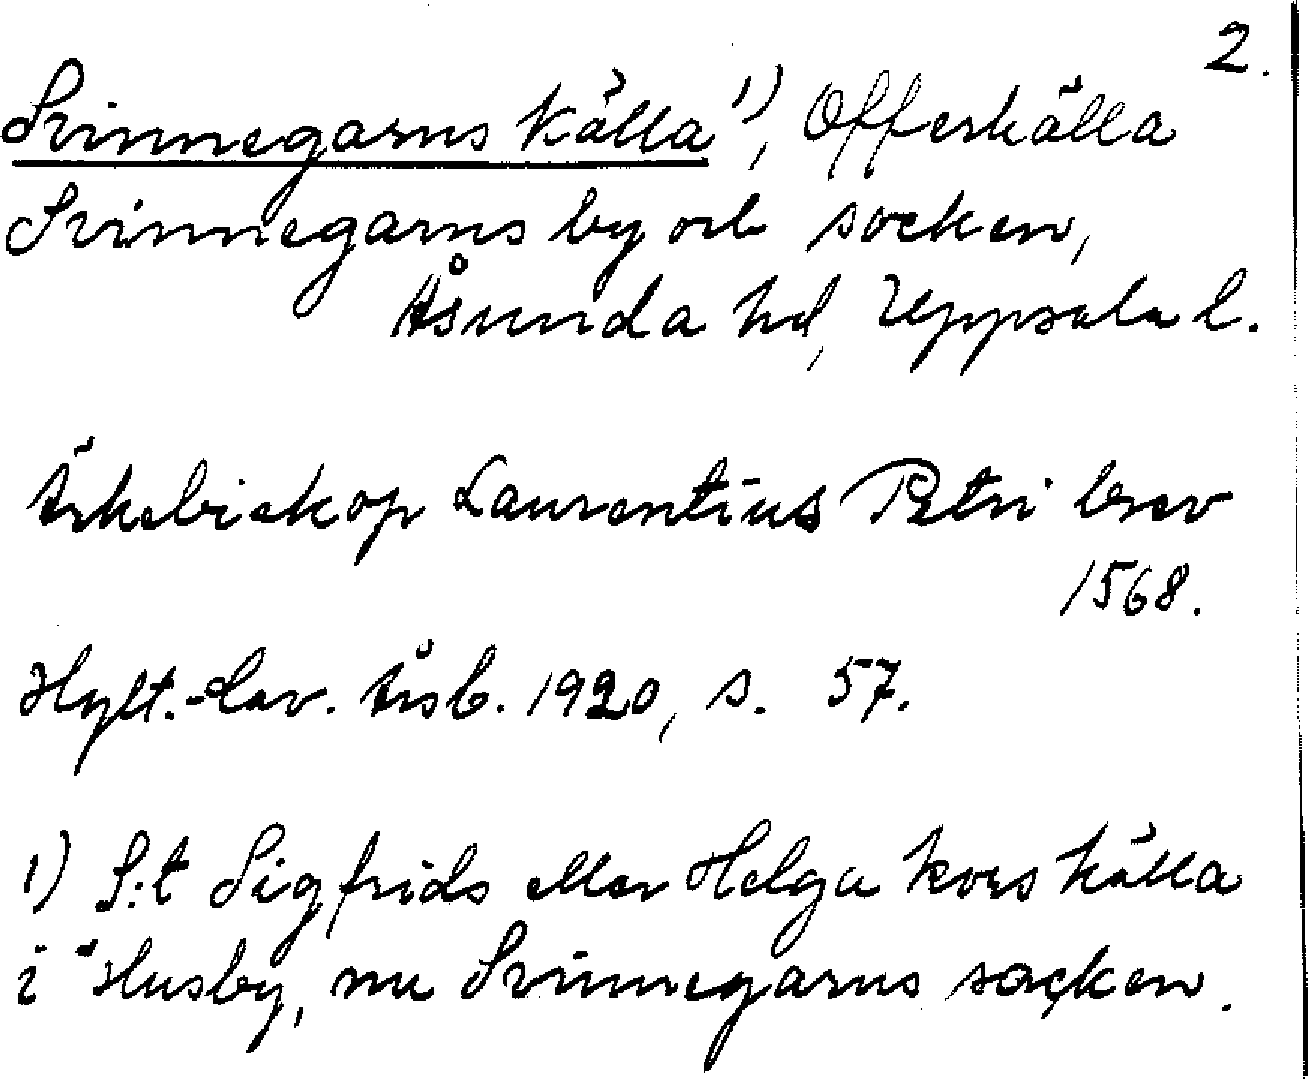 2.
Svinnegarns källa 1), Offerkälla
Svinnegarns by och socken,
Åsunda hd, Uppsala l.
Ärkebiskop Laurentius Petri brev
1568.
Hylt.-Cav. Årsb. 1920, s. 57.
1) S:t Sigfrids eller Helga kors källa
i Husby, nu Svinnegarns socken.